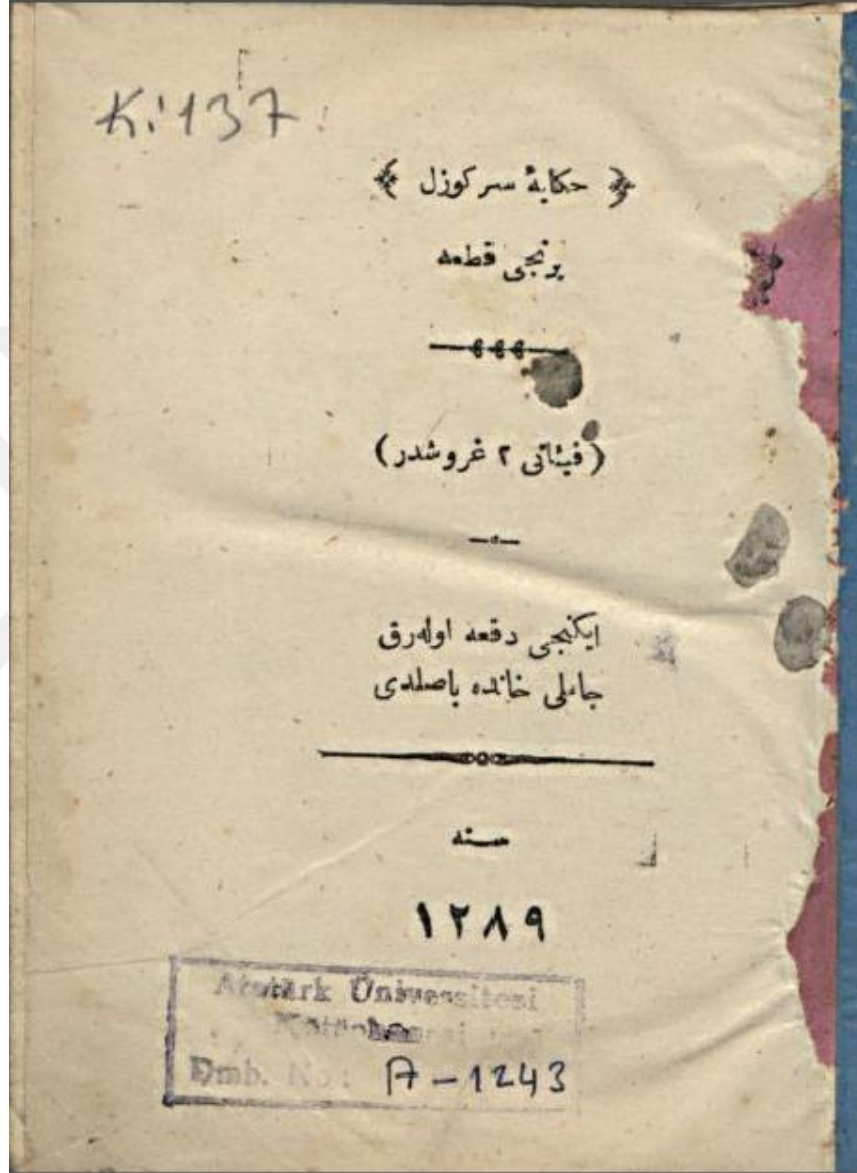 K: 137
﴿ حكایهٔ سركوزل ﴾
برنجی قطعه
(فیئاتی ٢ غروشدر)
ایكنجی دفعه اوله‌رق
جاملی خانده باصلدی
سنه
١٢٨٩
Atatürk Üniversitesi
Kütüphanesi
Dmb. No: A-1243